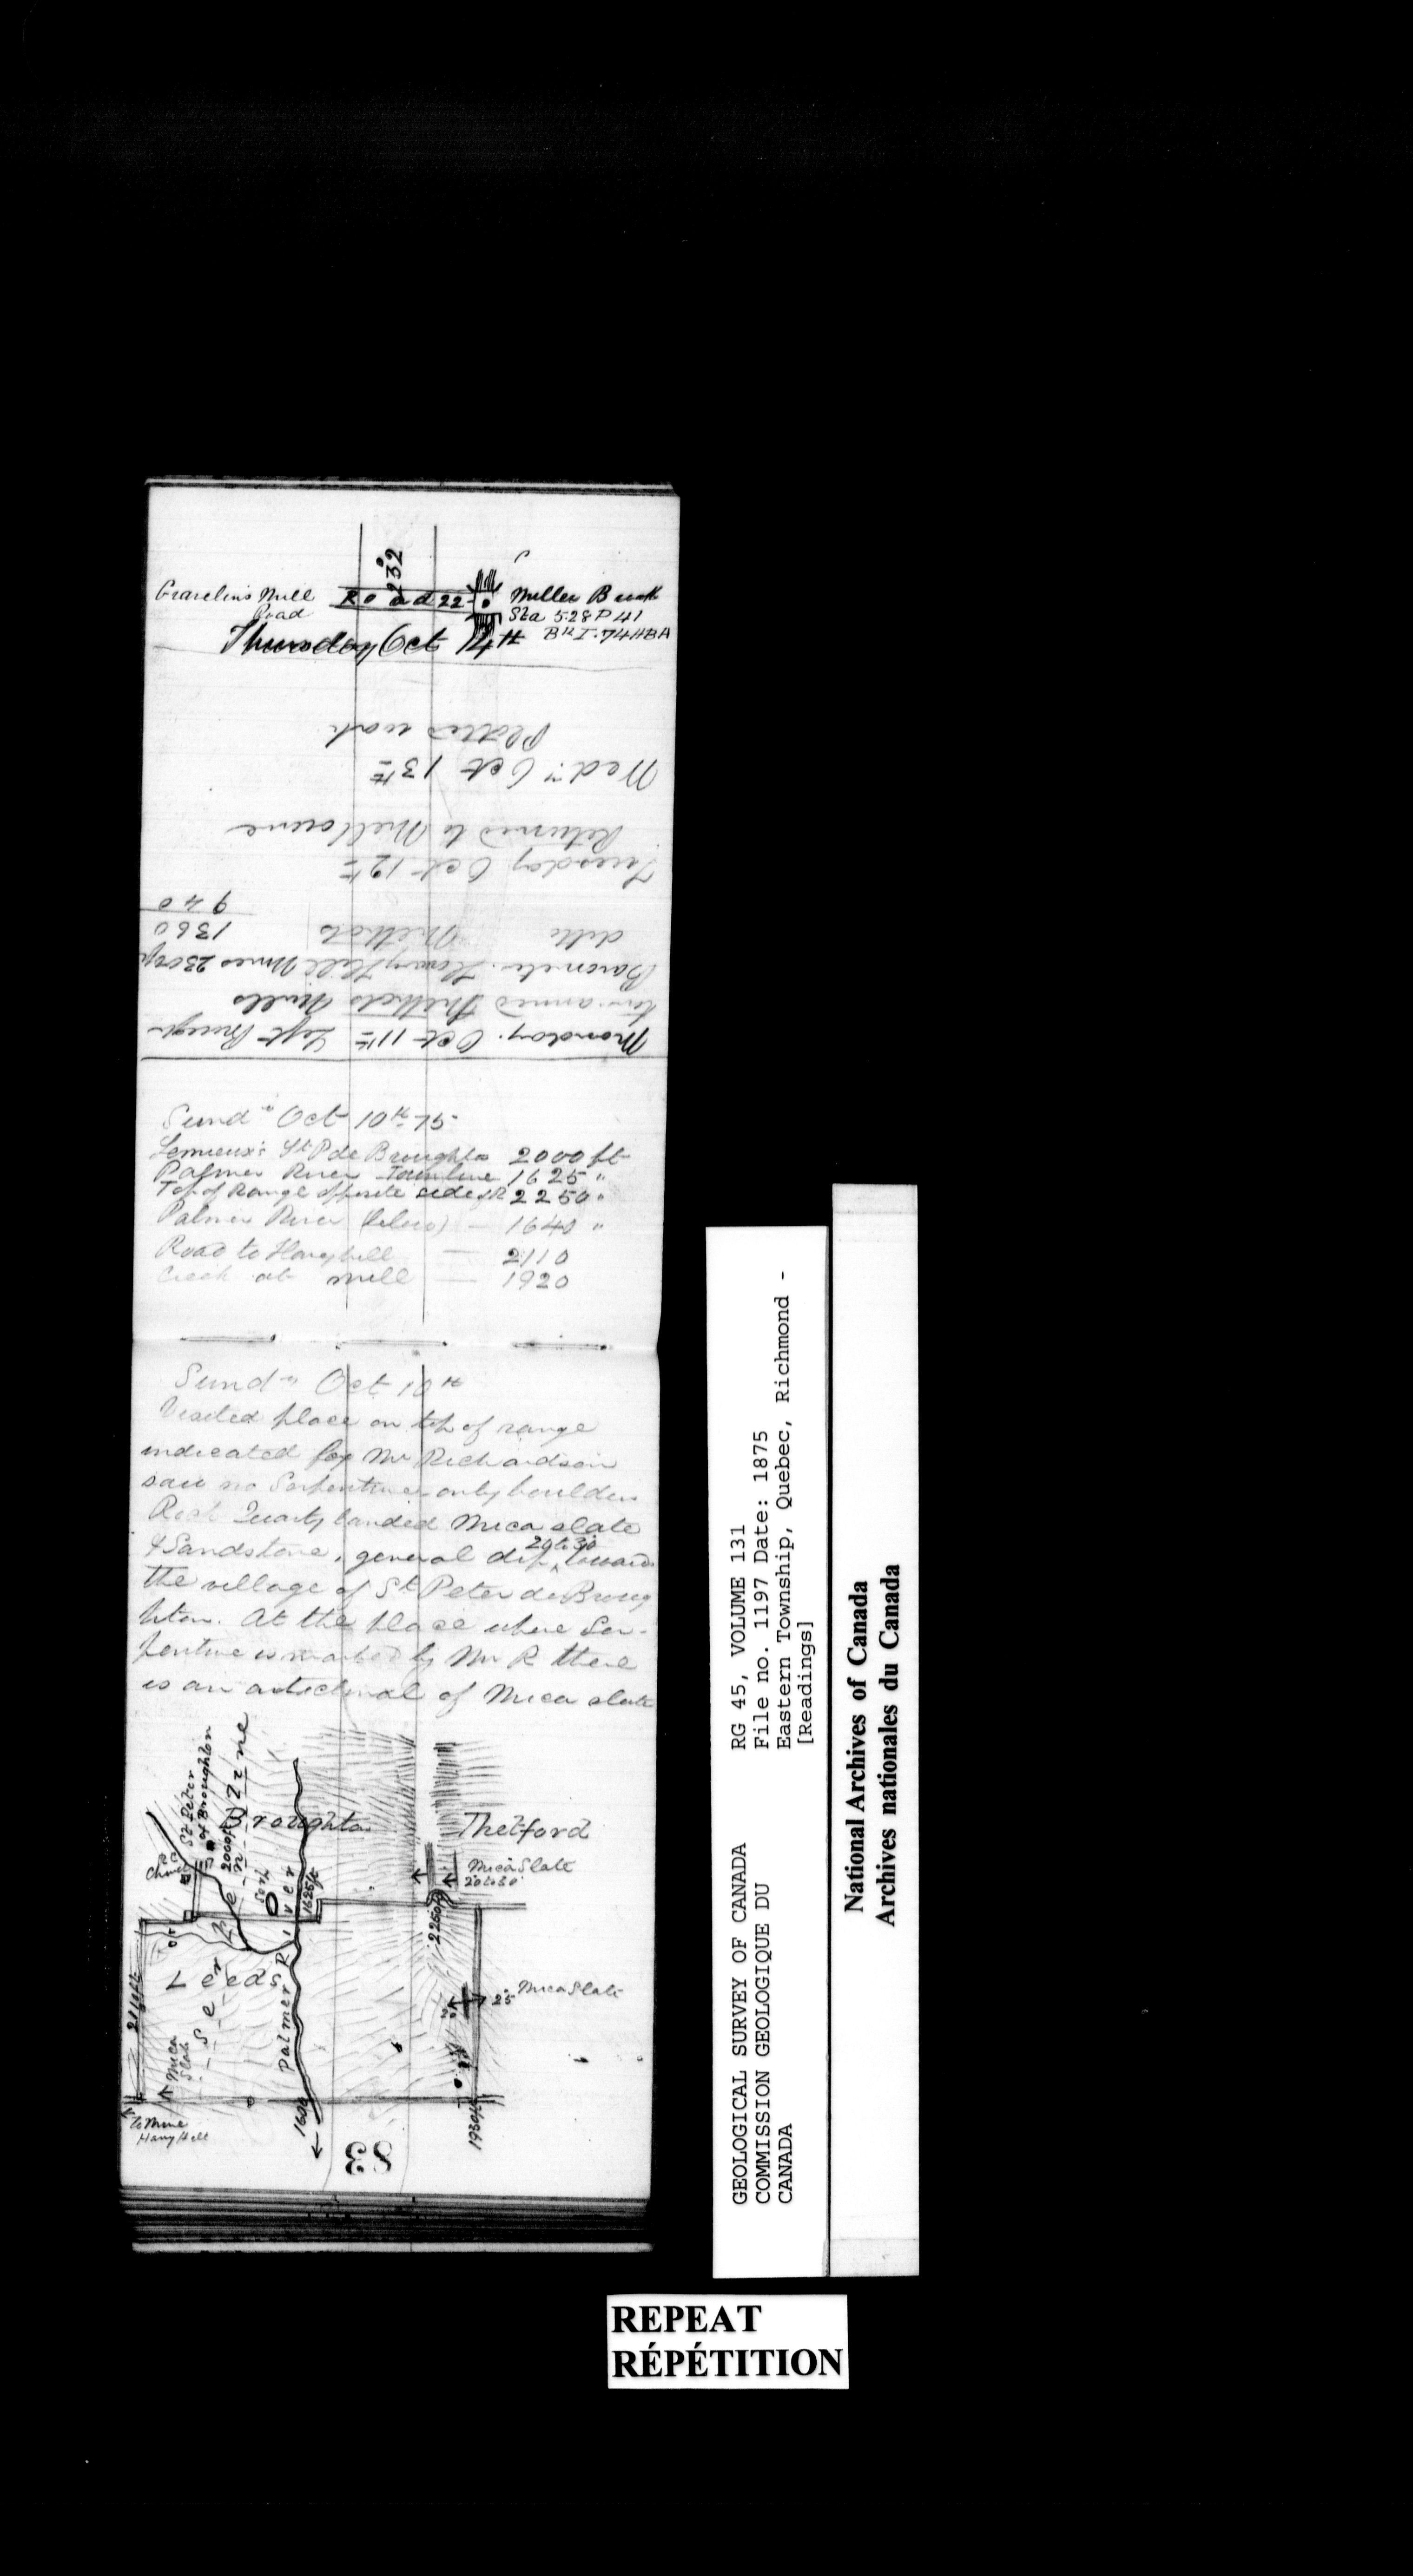 232
Gravelin's Mill
Road
Road 22
Miller B
Sta 528 P 41
Bk I. 74 HBA
Thursday Oct 14th
Monday. Oct 11th Left Brough-
ton arrived Mills
Barometer. Harvey Hill Mines 2300ft
ditto 1360
940
Tuesday Oct 12th
Returned to Melbourne
Wedy Oct 13th
Plotted work
Sundy Oct 10th 75
Lemieux's St P de Broughton 2000 ft
Palmer River Townline 1625 "
Top of Range opposite side of R 2250 "
Palmer River (below) — 1640 "
Road to Harveyhill — 2110
Creek at mill — 1920
Sundy Oct 10th
Visited place on top of range
indicated by Mr Richardson
saw no Serpentine only boulders
Rock Quartz banded Mica slate
& Sandstone, general dip 20 to 30 towards
the village of St Peter de Broug
hton. At the place where Ser-
pentine is marked by Mr R there
is an anticlinal of Mica slate
St Peter
of Broughton
2000ft
Broughton
Thetford
Serpentine
Serp
Mica Slate
20 to 30
1625ft
2250ft
Leeds
Palmer River
2110ft
Mica
Slate
25 Mica Slate
to Mine
Harvey Hill
1600
1930ft
83
GEOLOGICAL SURVEY OF CANADA
COMMISSION GEOLOGIQUE DU
CANADA
RG 45, VOLUME 131
File no. 1197 Date: 1875
Eastern Township, Quebec, Richmond -
[Readings]
National Archives of Canada
Archives nationales du Canada
REPEAT
RÉPÉTITION